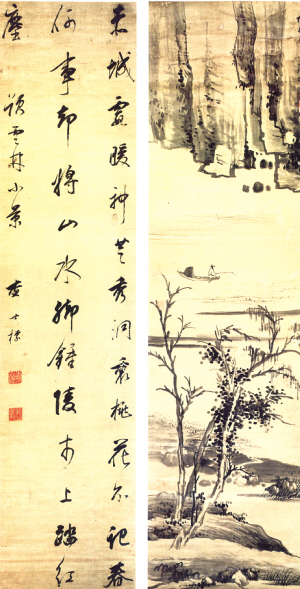 赤城霞暖神芝秀洞裏桃花不記春
何事却將山水脚鍾陵市上踏紅
塵　題雲林小景　查士標